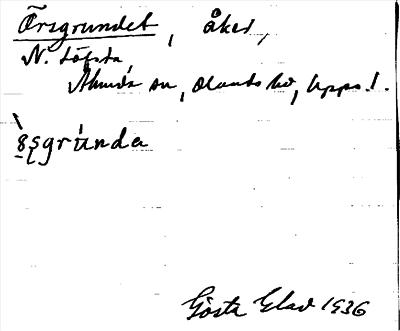 Örsgrundet, åker,
N. Löfsta,
Almunda sn, Olands hd, Upps. l.
Gösta Elav 1936